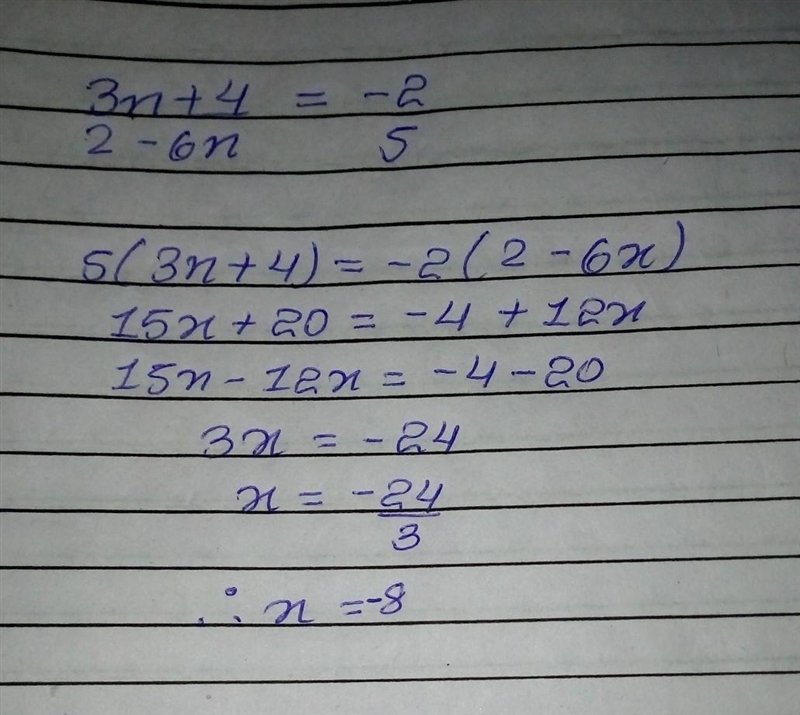 3x+4 = -2
2-6x 5
5(3x+4) = -2(2-6x)
15x+20 = -4+12x
15x-12x = -4-20
3x = -24
x = -24
3
∴ x = -8